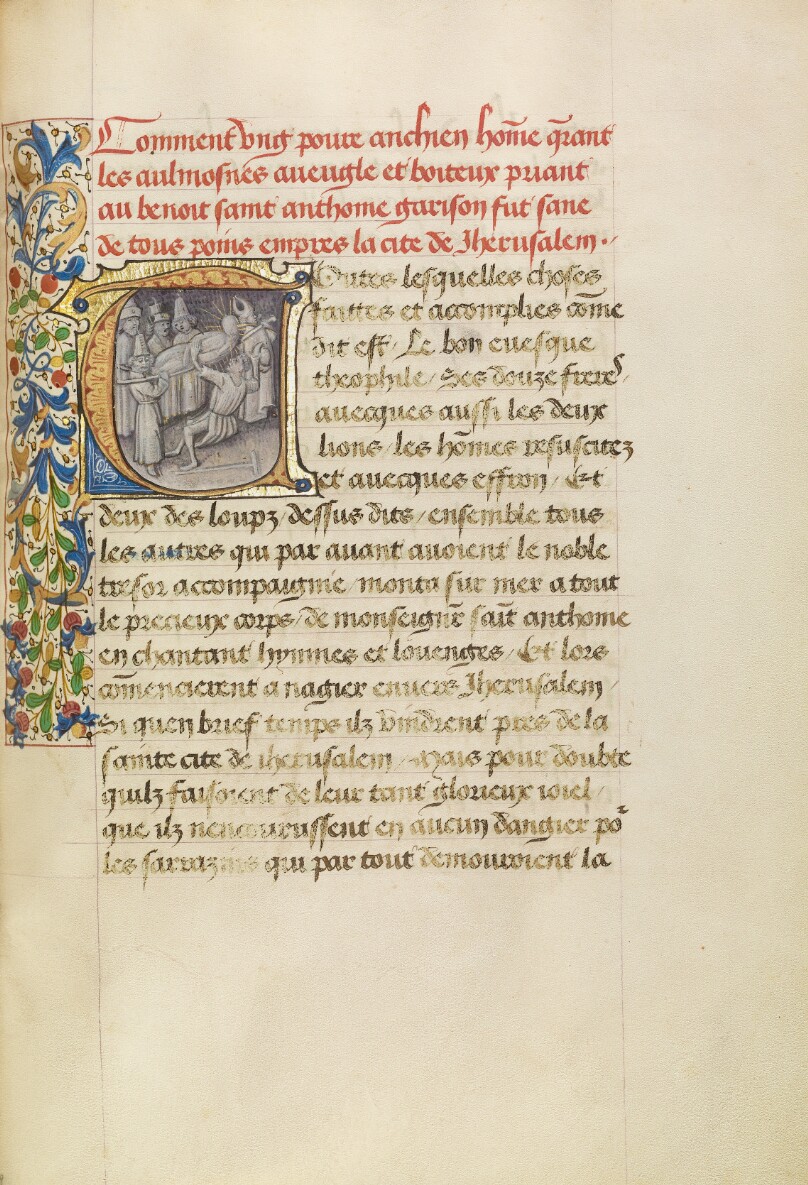 Comment vng poure anchien hōme q̄rant
les aulmosnes aueugle et boiteux priant
au benoit saint anthoine garison fut sane
de tous poins empres la cite de Jherusalem ·/
Toutes lesquelles choses
faittes et accomplies cōme
dit est / Le bon euesque
theophile / Ses douze freres /
auecques aussi les deux
lions / les hōmes resuscitez
et auecques effron / Et
deux des loupz / dessus dits / ensemble tous
les autres qui par auant auoient le noble
tresor accompaignie / monta sur mer a tout
le precieux corps / de monseignr̄ sait̄ anthoine
en chantant hymnes et louenges / Et lors
cōmencierent a nagier enuers Jherusalem /
Si quen brief temps ilz vindrent pres de la
sainte cite de iherusalem / Mais pour doubte
quilz faisoient de leur tant glorieux ioiel /
que ilz nencourussent en aucun dangier po᷑
les sarrazins qui par tout demouroient la